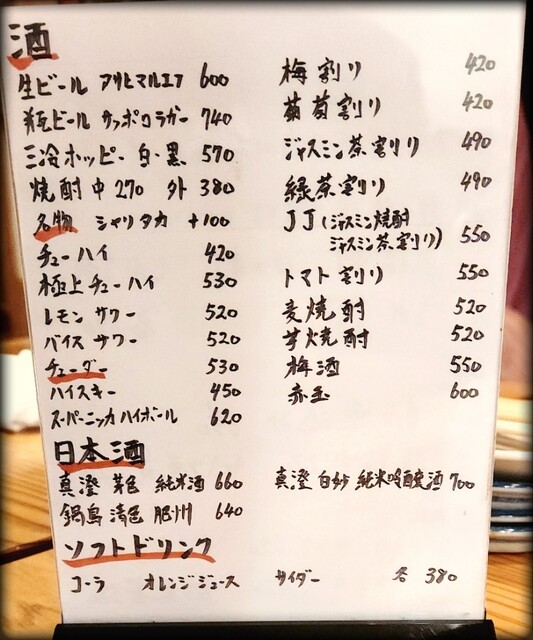 酒
生ビール アサヒマルエフ 600
瓶ビール サッポロラガー 740
三冷ホッピー 白・黒 570
焼酎 中270 外 380
名物 シャリキン +100
チューハイ 420
極上チューハイ 530
レモンサワー 520
バイスサワー 520
チューダー 530
ハイスキー 450
スーパーニッカハイボール 620
梅割り 420
葡萄割り 420
ジャスミン茶割り 490
緑茶割り 490
JJ(ジャスミン焼酎
ジャスミン茶割り) 550
トマト割り 550
麦焼酎 520
芋焼酎 520
梅酒 550
赤玉 600
日本酒
真澄 茅色 純米酒 660
真澄 白妙 純米吟醸酒 700
鍋島 清色 肥州 640
ソフトドリンク
コーラ オレンジジュース サイダー 各 380